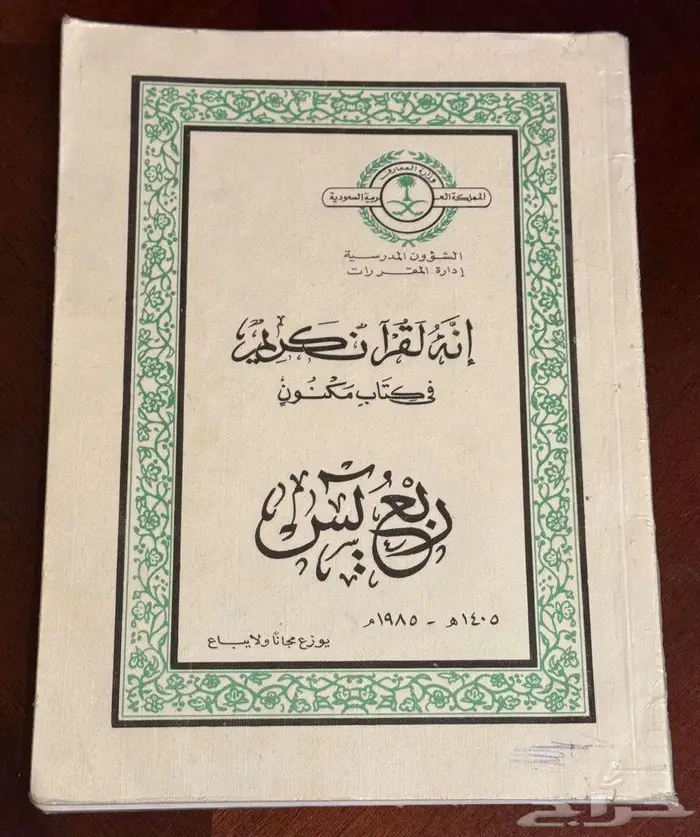 وزارة المعارف
المملكة العربية السعودية
الشؤون المدرسية
إدارة المقررات
إنَّهُ لَقُرْآنٌ كَرِيمٌ
فِي كِتَابٍ مَكْنُونٍ
رُبْعُ يَٓس
١٤٠٥هـ - ١٩٨٥م
يوزع مجاناً ولا يباع
حراج